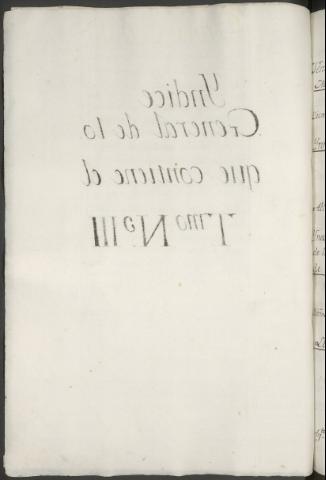 Yndice
General de lo
que contiene el
Tmo No III